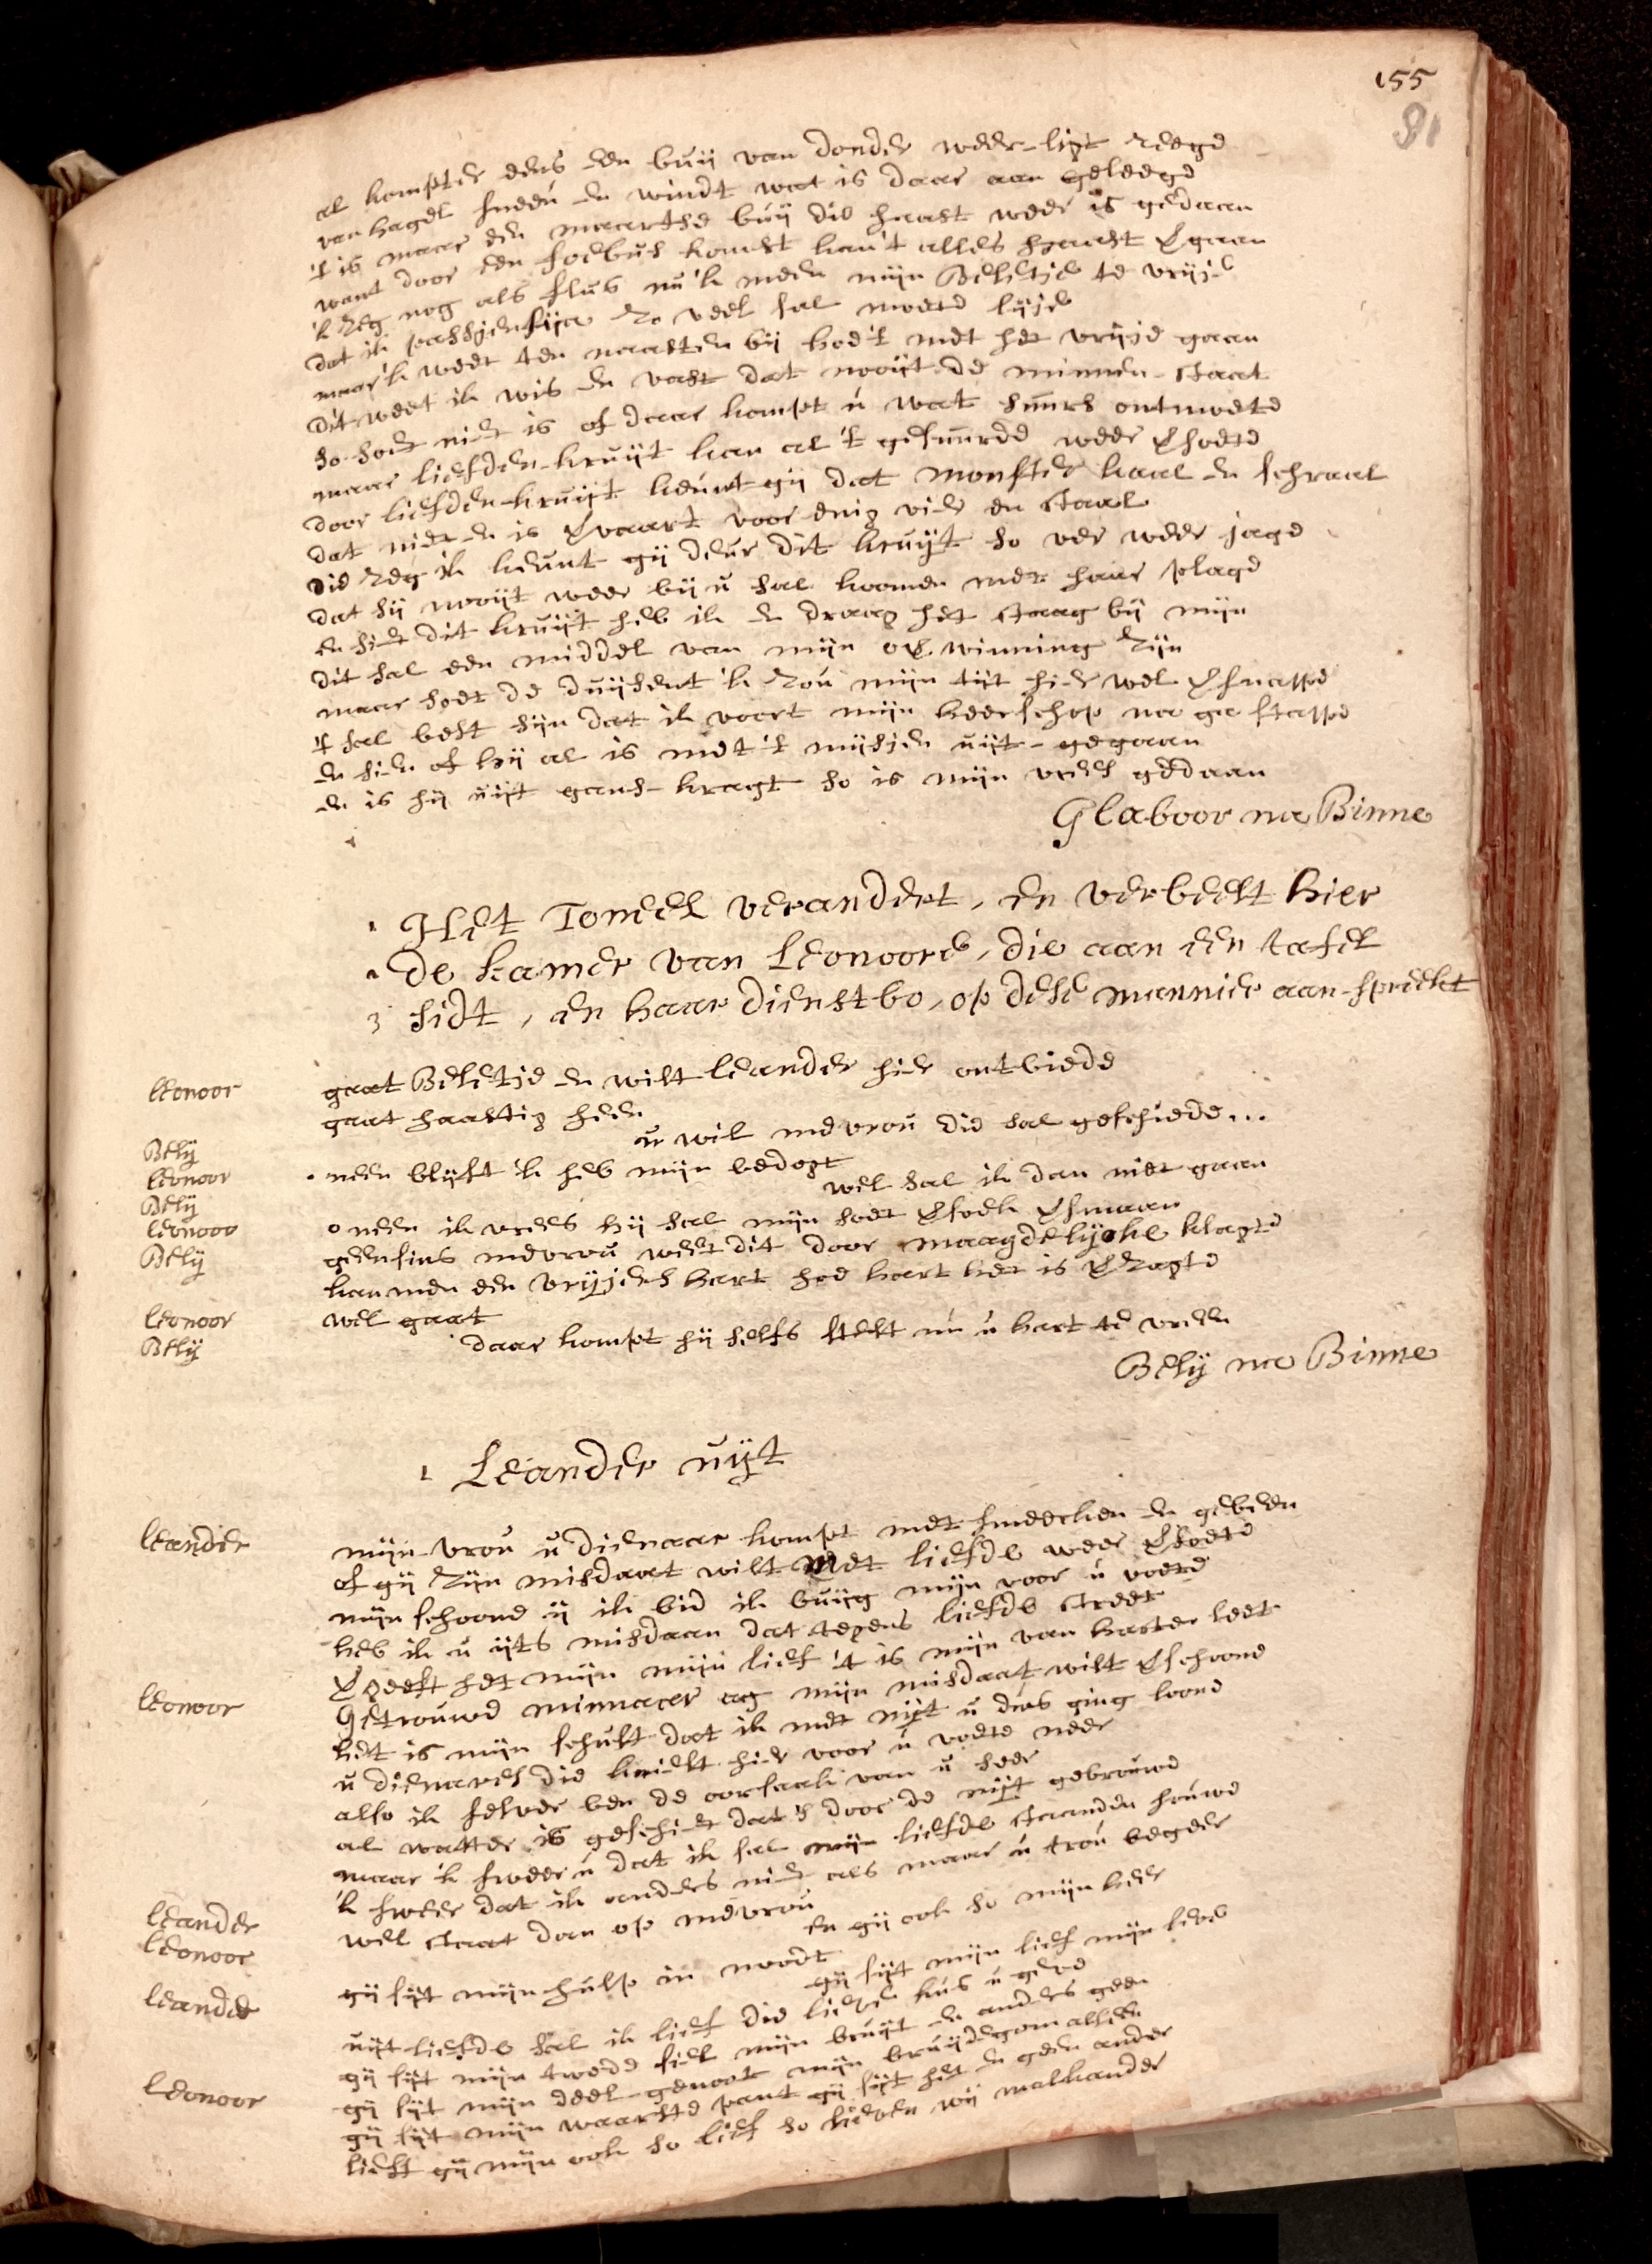 155
81
al kompter eens een buij van donder weer-ligt reege
van hagel sneeu en windt wat is daar aan geleege
't is maar een maartse buij die haast weer is gedaan
want door een foebus komst kan't alles haast vergaan
'k zeg nog als flus nu 'k meen mijn Beletje te vrije
dat ik passjensija zo veel sal moete lije
maar 'k weet ten naasten bij hoe't met het vrije gaan
dit weet ik wis en vast dat nooijt de minnen-staat
so soet niet is of daar kompt u wat suurs ontmoete
maar liefden-kruijt kan al 't gesuurde weer versoete
door liefden-kruijt keunt gij dat monster kaal en schraal
dat niet en is vervaart voor enig vier en staal
die zeg ik keunt gij deur dit kruijt so ver weer jage
dat sij nooijt weer bij u sal koomen met haar plage
en siet dit kruijt heb ik en draag het staag bij mijn
dit sal een middel van mijn overwinning zijn
maar soet de duijsent 'k zou mijn tijt hier wel versnappe
't sal best sijn dat ik voort mijn heerschop na ga stappe
en sien of hij al is met 't mijsjen uijt-gegaan
en is hij uijt gans-kragt so is mijn vrees gedaan
Glaboor na Binne
1 Het Toneel verandert, en verbeelt hier
2 de kamer van Leonoore, die aan een tafel
3 sidt, en haar dienstbo, op dese mannier aan-spreekt
leonoor gaat Beletje en wilt leander hier ontbiede
gaat haastig heen
Belij u wil mevrou die sal geschiede...
leonoor neen blijft 'k heb mijn bedogt
Belij wel sal ik dan niet gaan
leonoor o neen ik vrees hij sal mijn soet versoek versmaan
Belij geensins mevrou weet dit door maagdelijcke klagte
kan men een vrijjers hart hoe hart het is verzagte
leonoor wel gaat
Belij daar kompt hij selfs stelt nu u hart te vreen
Belij na Binne
1 Leander uijt
leander mijn-vrou u dienaar kompt met smeecken en gebeen
of gij zijn misdaat wilt met liefde weer versoete
mijn schoone ij ik bid ik buijg mijn voor u voete
heb ik u ijts misdaan dat tegens liefde street
vergeeft het mijn mijn lief 't is mijn van harten leet
leonoor Getrouwe minnaer ag mijn misdaat wilt verschoone
het is mijn schult dat ik met nijt u dus ging loone
u dienares die knielt hier voor u voete neer
also ik selver ben de oorsaak van u seer
al watter is geschiet dat's door de nijt gebrouwe
maar 'k sweer u dat ik sal mijn liefde staanden houwe
'k sweer dat ik anders niet als maar u trou begeer
leander wel staat dan op mevrou
leonoor en gij ook so mijn heer
gij sijt mijn hulp in noodt
leander gij sijt mijn lief mijn leeve
uijt liefde sal ik lief die liefde kus u geeve
gij sijt mijn twede siel mijn bruijt en anders geen
leonoor gij sijt mijn deel-genoot mijn bruijdegom alleen
gij sijt mijn waarste pant gij sijt het en geen ander
lieft gij mijn ook so lief so lieven wij malkander